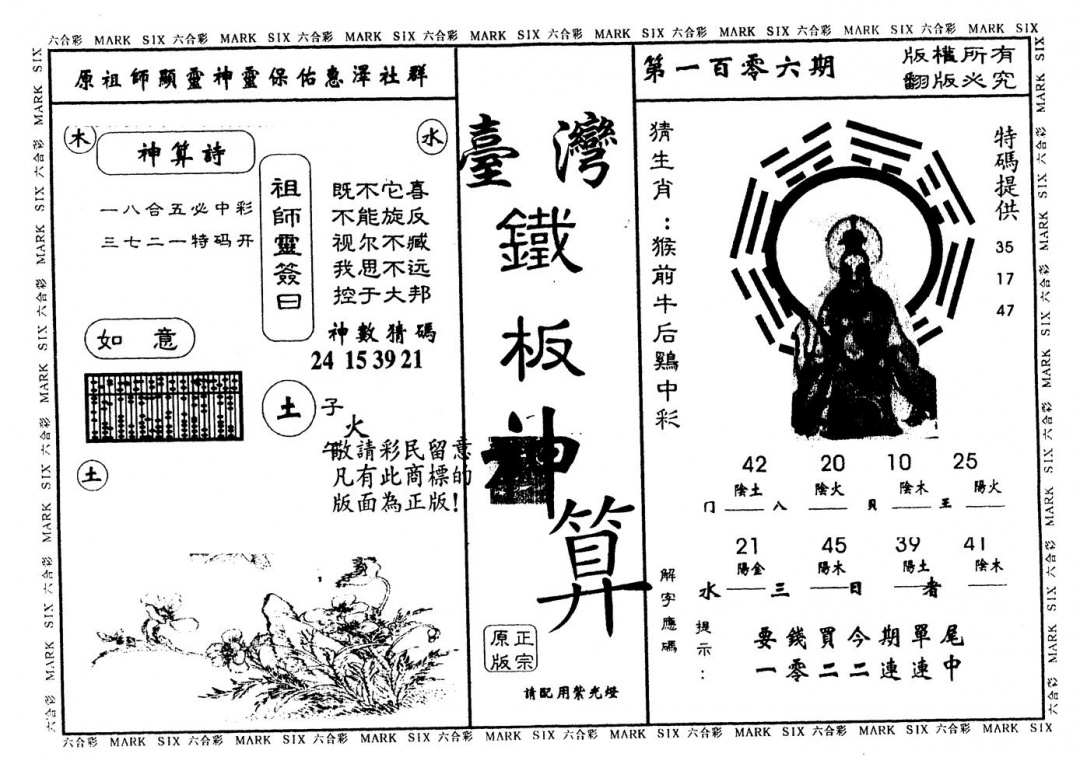 六合彩 MARK SIX 六合彩 MARK SIX 六合彩 MARK SIX 六合彩 MARK SIX 六合彩 MARK SIX 六合彩 MARK SIX 六合彩 MARK SIX 六合彩 MARK SIX
原祖師顯靈神靈保佑惠澤社群
木
神算詩
水
一八合五必中彩
三七二一特码开
祖師靈簽曰
既不它喜
不能旋反
视尔不臧
我思不远
控于大邦
神數猜碼
24 15 39 21
如意
土
子
火
午
敬請彩民留意
凡有此商標的
版面為正版!
土
臺灣
鐵
板
神
算
正宗
原版
請配用紫光燈
第一百零六期
版權所有
翻版必究
猜生肖:猴前牛后鷄中彩
特碼提供
35
17
47
42 20 10 25
陰土 陰火 陰木 陽火
门 八 贝 王
21 45 39 41
陽金 陽木 陽土 陰木
水 三 日 者
解字應碼
提示:
要錢買今期單尾
一零二二連連中
六合彩 MARK SIX 六合彩 MARK SIX 六合彩 MARK SIX 六合彩 MARK SIX 六合彩 MARK SIX 六合彩 MARK SIX 六合彩 MARK SIX 六合彩 MARK SIX